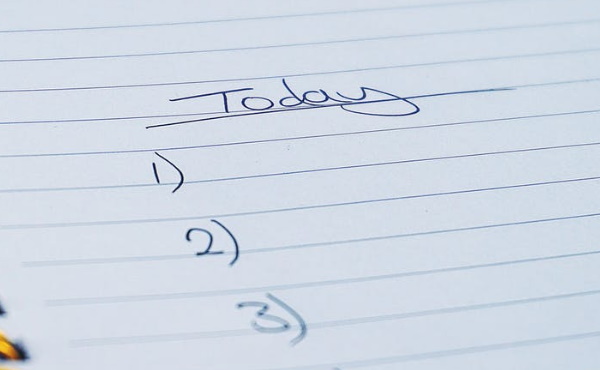 Today
1)
2)
3)